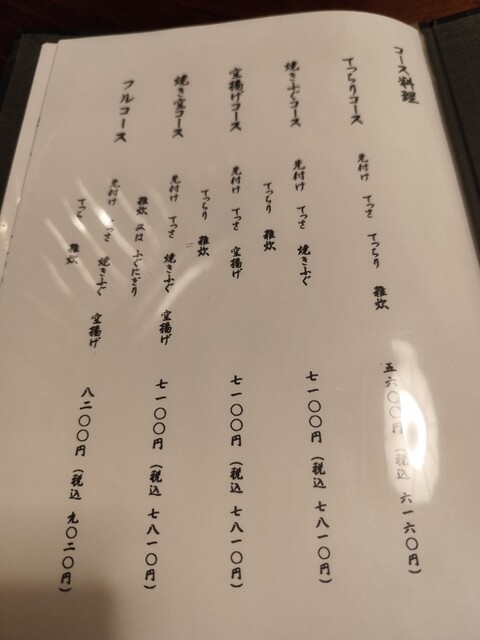 コース料理
てっちりコース
先付け てっさ てっちり 雑炊
五六〇〇円（税込 六一六〇円）
焼きふぐコース
先付け てっさ 焼きふぐ
てっちり 雑炊
七一〇〇円（税込 七八一〇円）
空揚げコース
先付け てっさ 空揚げ
てっちり 雑炊
七一〇〇円（税込 七八一〇円）
焼き空コース
先付け てっさ 焼きふぐ 空揚げ
雑炊 又は ふぐにぎり
七一〇〇円（税込 七八一〇円）
フルコース
先付け てっさ 焼きふぐ 空揚げ
てっちり 雑炊
八二〇〇円（税込 九〇二〇円）